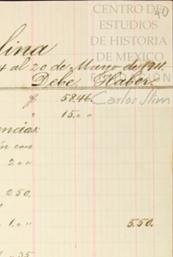 CENTRO DE
ESTUDIOS
DE HISTORIA
DE MEXICO
40
lina
4 al 20 de Mayo de 1911.
Debe Haber
FUNDACIÓN
Carlos Slim
58.46
15. " "
encias
2 " "
0.50.
1. " " 5.50.